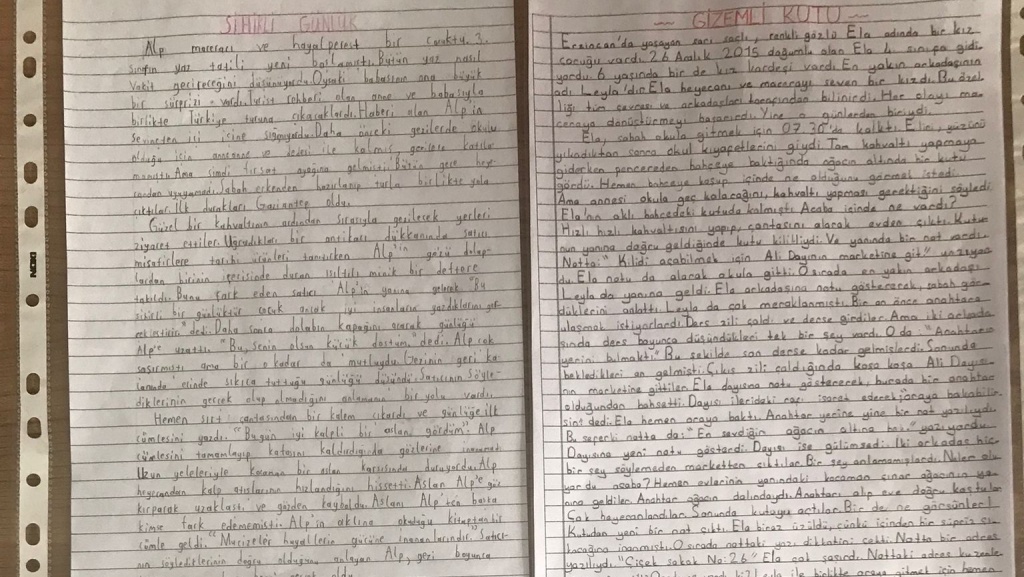 SİHİRLİ GÜNLÜK
Alp maceracı ve hayalperest bir çocuktu. 3.
sınıfın yaz tatili yeni başlamıştı. Bütün yaz nasıl
vakit geçireceğini düşünüyordu. Oysaki babasının ona büyük
bir sürprizi vardı. Turist rehberi olan anne ve babasıyla
birlikte Türkiye turuna çıkacaklardı. Haberi alan Alp'in
sevincten içi içine sığmıyordu. Daha önceki gezilerde okulu
olduğu için anneanne ve dedesi ile kalmış, gezilere katıla-
mamıştı. Ama şimdi fırsat ayağına gelmişti. Bütün gece heye-
candan uyuyamadı. Sabah erkenden hazırlanıp turla birlikte yola
çıktılar. İlk durakları Gaziantep oldu.
Güzel bir kahvaltının ardından sırasıyla gezilecek yerleri
ziyaret ettiler. Uğradıkları bir antikacı dükkanında satıcı
misafirlere tarihi ürünleri tanıtırken Alp'in gözü dolap-
lardan birinin içerisinde duran ışıltılı minik bir deftere
takıldı. Bunu fark eden satıcı Alp'in yanına gelerek "Bu
sihirli bir günlüktür çocuk ancak iyi insanların yazdıklarını ger-
çekleştirir" dedi. Daha sonra dolabın kapağını açarak günlüğü
Alp'e uzattı. "Bu, senin olsun küçük dostum." dedi. Alp çok
şaşırmıştı ama bir o kadar da mutluydu. Gezinin geri ka-
lanında elinde sıkıca tuttuğu günlüğü düşündü. Satıcının söyle-
diklerinin gerçek olup olmadığını anlamanın bir yolu vardı.
Hemen sırt çantasından bir kalem çıkardı ve günlüğe ilk
cümlesini yazdı. "Bugün iyi kalpli bir aslan gördüm." Alp
cümlesini tamamlayıp kafasını kaldırdığında gözlerine inanamadı.
Uzun yeleleriyle kocaman bir aslan karşısında duruyordu. Alp
heyecandan kalp atışlarının hızlandığını hissetti. Aslan Alp'e göz
kırparak uzaklaştı ve gözden kayboldu. Aslanı Alp'ten başka
kimse fark edememişti. Alp'in aklına okuduğu kitaptan bir
cümle geldi. "Mucizeler hayallerin gücüne inananlarındır." Satıcı-
nın söylediklerinin doğru olduğunu anlayan Alp, gezi boyunca
GİZEMLİ KUTU
Erzincan'da yaşayan sarı saçlı, renkli gözlü Ela adında bir kız
çocuğu vardı. 26 Aralık 2015 doğumlu olan Ela 4. sınıfa gidi-
yordu. 6 yaşında bir de kız kardeşi vardı. En yakın arkadaşının
adı Leyla'dır. Ela heyecanı ve macerayı seven bir kızdı. Bu özel-
liği tüm çevresi ve arkadaşları tarafından bilinirdi. Her olayı ma-
ceraya dönüştürmeyi başarırdı. Yine o günlerden biriydi.
Ela, sabah okula gitmek için 07.30'da kalktı. Elini, yüzünü
yıkadıktan sonra okul kıyafetlerini giydi. Tam kahvaltı yapmaya
giderken pencereden bahçeye baktığında ağacın altında bir kutu
gördü. Hemen bahçeye koşup içinde ne olduğunu görmek istedi.
Ama annesi okula geç kalacağını, kahvaltı yapması gerektiğini söyledi.
Ela'nın aklı bahçedeki kutuda kalmıştı. Acaba içinde ne vardı?
Hızlı hızlı kahvaltısını yapıp, çantasını alarak evden çıktı. Kutu-
nun yanına doğru geldiğinde kutu kilitliydi. Ve yanında bir not vardı.
Notta: "Kilidi açabilmek için Ali Dayının marketine git" yazıyor-
du. Ela notu da alarak okula gitti. O sırada en yakın arkadaşı
Leyla da yanına geldi. Ela arkadaşına notu göstererek, sabah gör-
düklerini anlattı. Leyla da çok meraklanmıştı. Bir an önce anahtara
ulaşmak istiyorlardı. Ders zili çaldı ve derse girdiler. Ama iki arkada-
şında ders boyunca düşündükleri tek bir şey vardı. O da: "Anahtarın
yerini bulmaktı." Bu şekilde son derse kadar gelmişlerdi. Sonunda
bekledikleri an gelmişti. Çıkış zili çaldığında koşa koşa Ali Dayısı-
nın marketine gittiler. Ela dayısına notu göstererek, burada bir anahtar
olduğundan bahsetti. Dayısı ilerideki rafı işaret ederek oraya bakabilir-
sin dedi. Ela hemen oraya baktı. Anahtar yerine yine bir not yazılıydı.
Bu seferki notta da: "En sevdiğin ağacın altına bak." yazıyordu.
Dayısına yeni notu gösterdi. Dayısı ise gülümsedi. İki arkadaş hiç-
bir şey söylemeden marketten çıktılar. Bir şey anlamamışlardı. Neler olu-
yordu acaba? Hemen evlerinin yanındaki kocaman çınar ağacının ya-
nına geldiler. Anahtar ağacın dalındaydı. Anahtarı alıp eve doğru koştular.
Çok heyecanlandılar. Sonunda kutuyu açtılar. Bir de ne görsünler!
Kutudan yeni bir not çıktı. Ela biraz üzüldü, çünkü içinden bir süpriz çı-
kacağına inanmıştı. O sırada nottaki yazı dikkatini çekti. Notta bir adres
yazılıydı. "Çiçek sokak No: 26" Ela çok şaşırdı. Nottaki adres